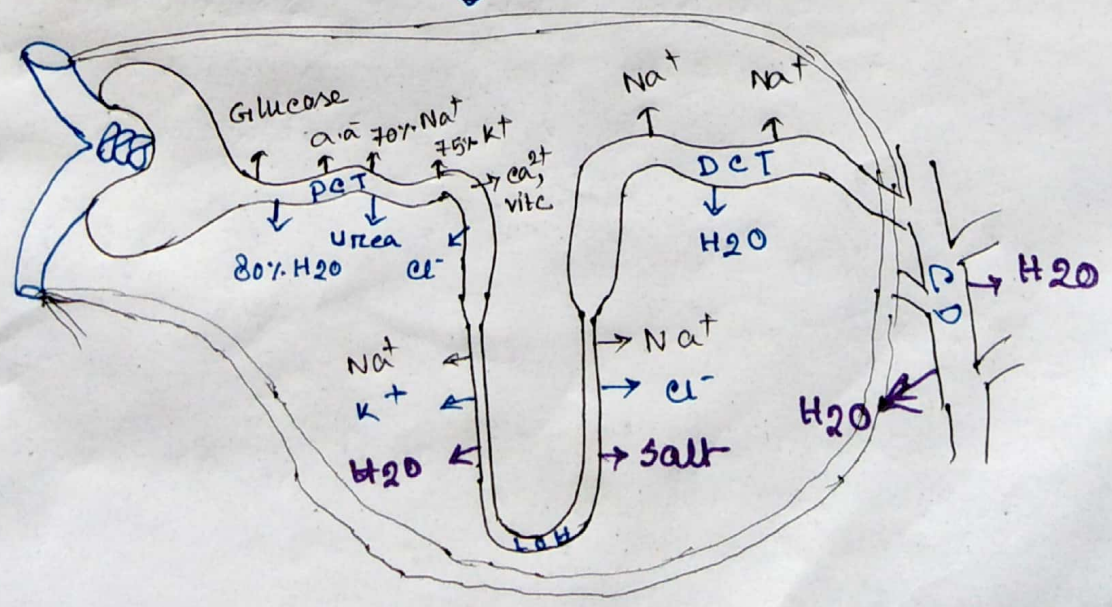 Glucose
a.a
70% Na+
75% K+
Ca2+,
vitc
PCT
80% H2O
Urea
Cl-
Na+
Na+
DCT
H2O
CD
H2O
H2O
Na+
K+
H2O
Na+
Cl-
Salt
LOH